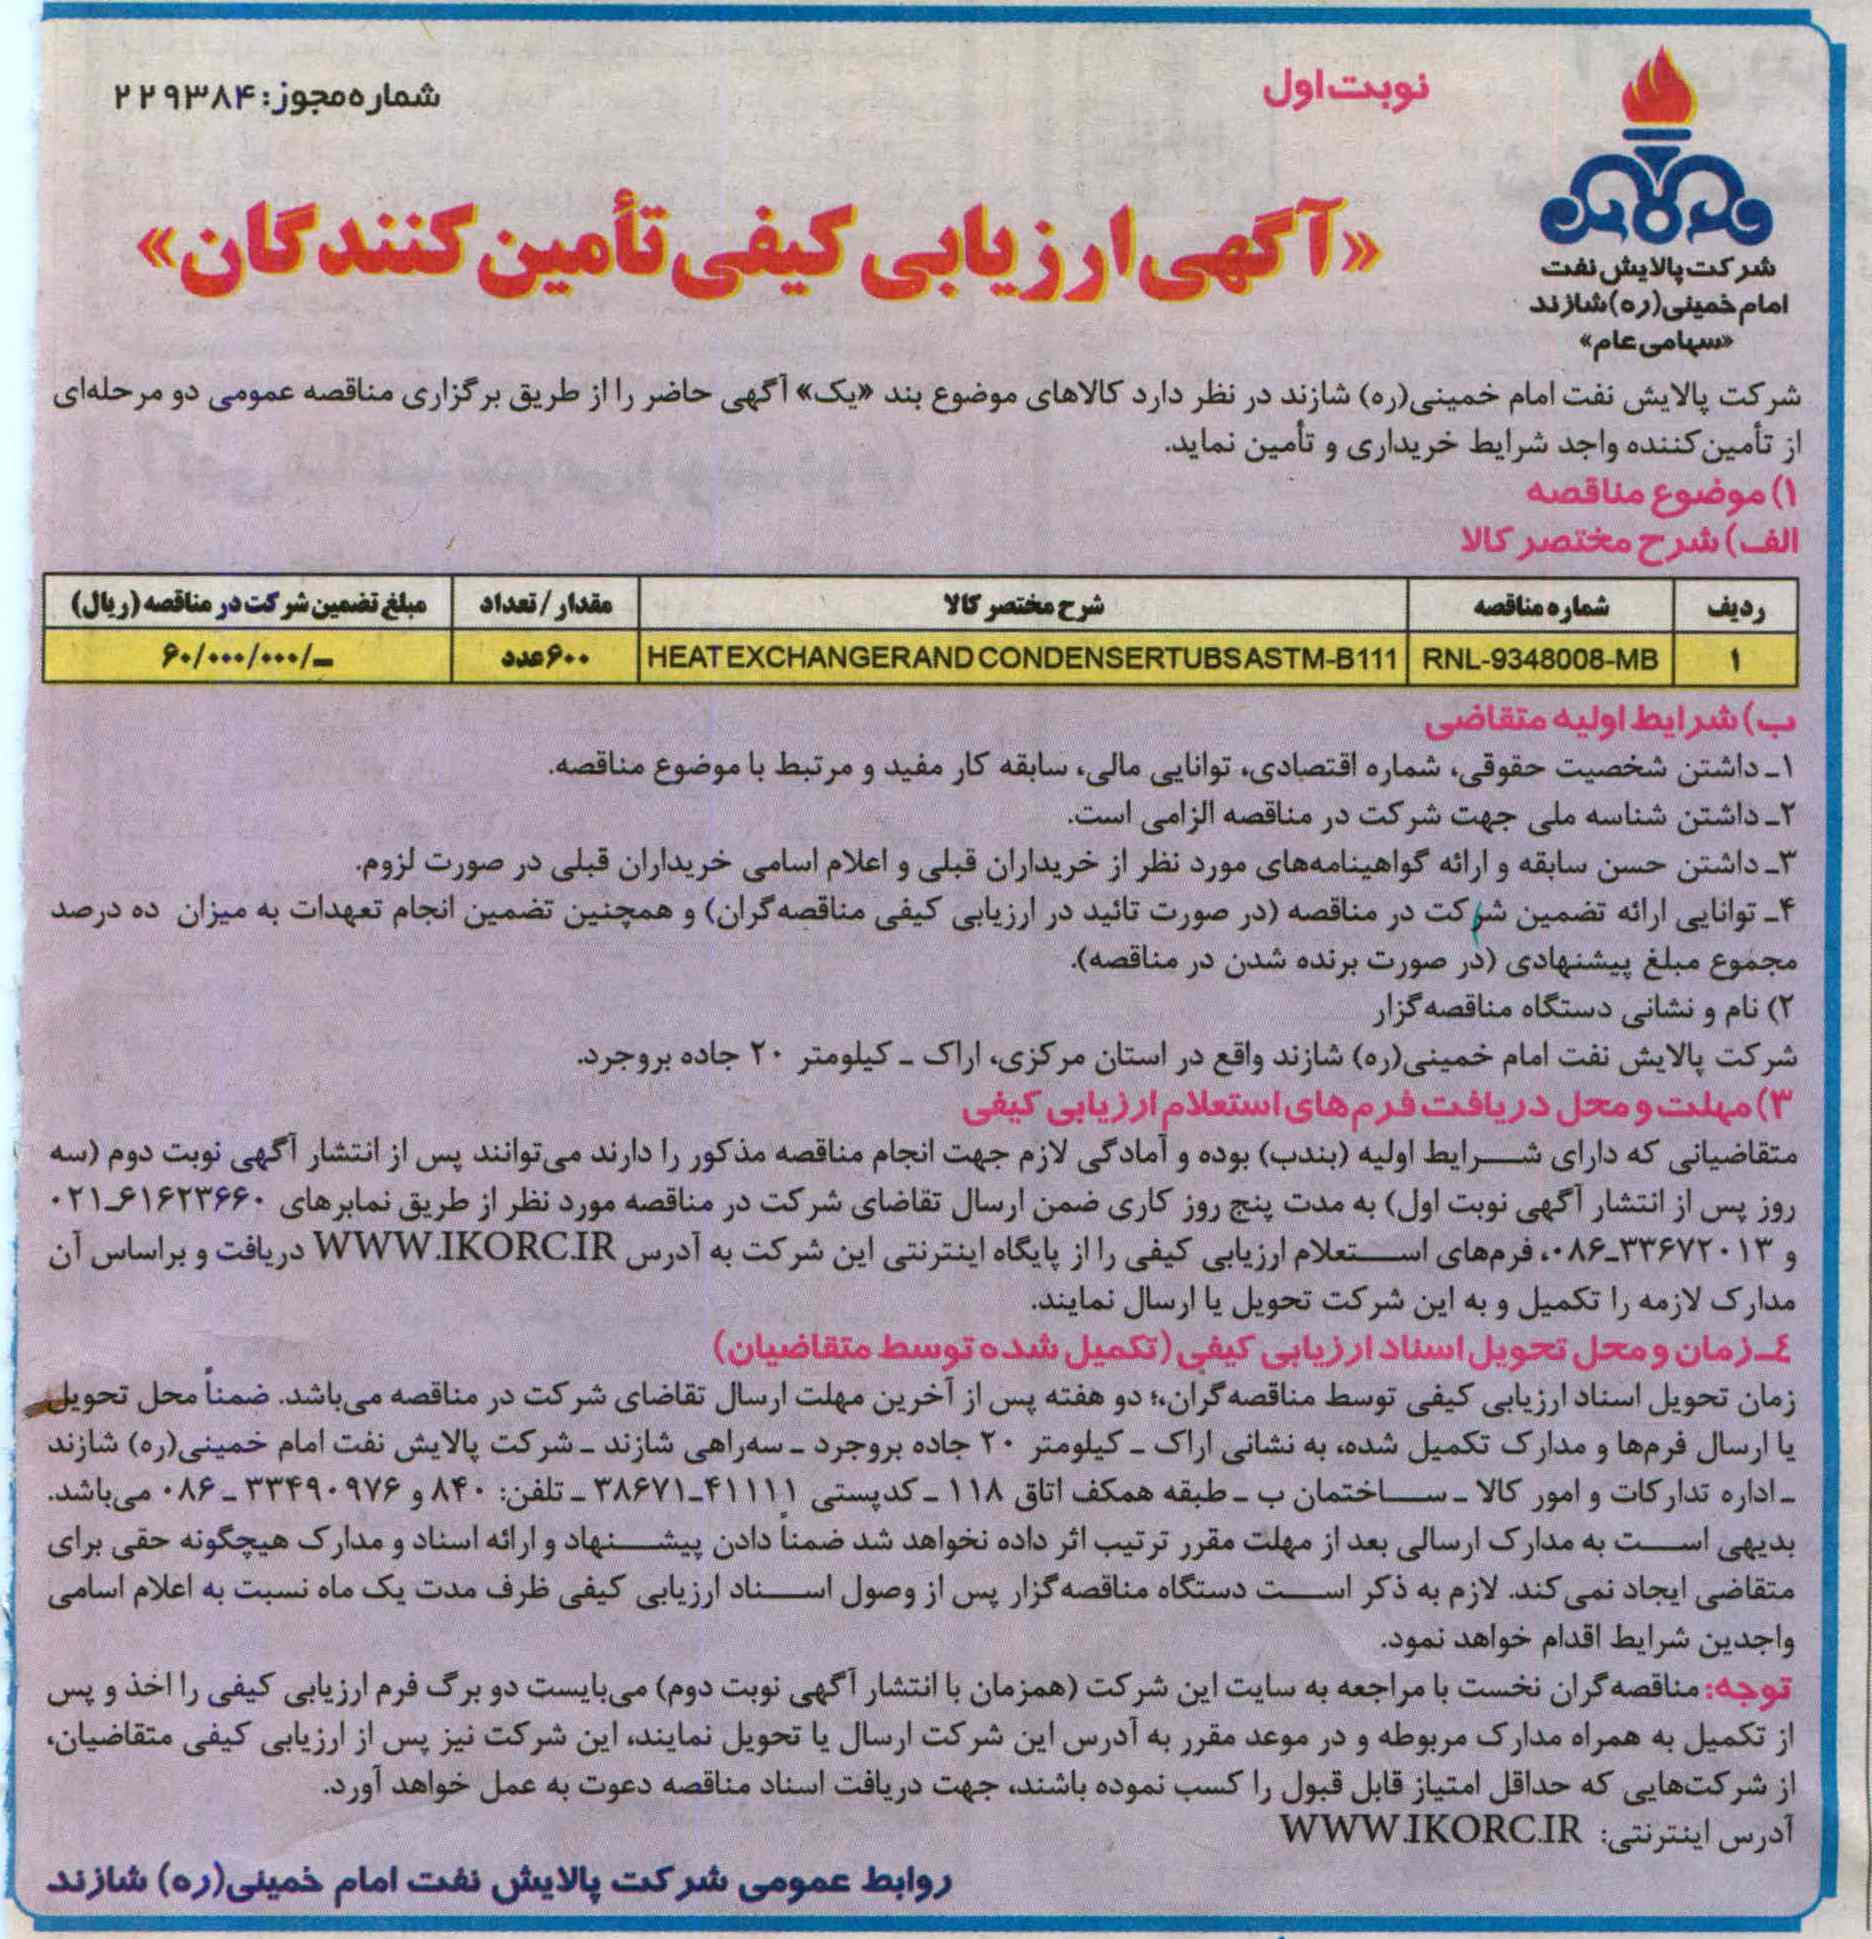 نوبت اول
شماره مجوز: ۲۲۹۳۸۴
شرکت پالایش نفت
امام خمینی(ره) شازند
«سهامی عام»
«آگهی ارزیابی کیفی تأمین کنندگان»
شرکت پالایش نفت امام خمینی(ره) شازند در نظر دارد کالاهای موضوع بند «یک» آگهی حاضر را از طریق برگزاری مناقصه عمومی دو مرحله‌ای
از تأمین‌کننده واجد شرایط خریداری و تأمین نماید.
۱) موضوع مناقصه
الف) شرح مختصر کالا
ردیف شماره مناقصه شرح مختصر کالا مقدار / تعداد مبلغ تضمین شرکت در مناقصه (ریال)
۱ RNL-9348008-MB HEAT EXCHANGER AND CONDENSER TUBS ASTM-B111 ۶۰۰ عدد ۶۰/۰۰۰/۰۰۰/ـ
ب) شرایط اولیه متقاضی
۱ـ داشتن شخصیت حقوقی، شماره اقتصادی، توانایی مالی، سابقه کار مفید و مرتبط با موضوع مناقصه.
۲ـ داشتن شناسه ملی جهت شرکت در مناقصه الزامی است.
۳ـ داشتن حسن سابقه و ارائه گواهینامه‌های مورد نظر از خریداران قبلی و اعلام اسامی خریداران قبلی در صورت لزوم.
۴ـ توانایی ارائه تضمین شرکت در مناقصه (در صورت تائید در ارزیابی کیفی مناقصه‌گران) و همچنین تضمین انجام تعهدات به میزان ده درصد
مجموع مبلغ پیشنهادی (در صورت برنده شدن در مناقصه).
۲) نام و نشانی دستگاه مناقصه‌گزار
شرکت پالایش نفت امام خمینی(ره) شازند واقع در استان مرکزی، اراک ـ کیلومتر ۲۰ جاده بروجرد.
۳) مهلت و محل دریافت فرم‌های استعلام ارزیابی کیفی
متقاضیانی که دارای شرایط اولیه (بندب) بوده و آمادگی لازم جهت انجام مناقصه مذکور را دارند می‌توانند پس از انتشار آگهی نوبت دوم (سه
روز پس از انتشار آگهی نوبت اول) به مدت پنج روز کاری ضمن ارسال تقاضای شرکت در مناقصه مورد نظر از طریق نمابرهای ۶۱۶۲۳۶۶۰ـ۰۲۱
و ۳۳۶۷۲۰۱۳ـ۰۸۶، فرم‌های استعلام ارزیابی کیفی را از پایگاه اینترنتی این شرکت به آدرس WWW.IKORC.IR دریافت و براساس آن
مدارک لازمه را تکمیل و به این شرکت تحویل یا ارسال نمایند.
٤ـ زمان و محل تحویل اسناد ارزیابی کیفی (تکمیل شده توسط متقاضیان)
زمان تحویل اسناد ارزیابی کیفی توسط مناقصه‌گران،؛ دو هفته پس از آخرین مهلت ارسال تقاضای شرکت در مناقصه می‌باشد. ضمناً محل تحویل
یا ارسال فرم‌ها و مدارک تکمیل شده، به نشانی اراک ـ کیلومتر ۲۰ جاده بروجرد ـ سه‌راهی شازند ـ شرکت پالایش نفت امام خمینی(ره) شازند
ـ اداره تدارکات و امور کالا ـ ساختمان ب ـ طبقه همکف اتاق ۱۱۸ ـ کدپستی ۴۱۱۱۱ـ۳۸۶۷۱ ـ تلفن: ۸۴۰ و ۳۳۴۹۰۹۷۶ ـ ۰۸۶ می‌باشد.
بدیهی است به مدارک ارسالی بعد از مهلت مقرر ترتیب اثر داده نخواهد شد ضمناً دادن پیشنهاد و ارائه اسناد و مدارک هیچگونه حقی برای
متقاضی ایجاد نمی‌کند. لازم به ذکر است دستگاه مناقصه‌گزار پس از وصول اسناد ارزیابی کیفی ظرف مدت یک ماه نسبت به اعلام اسامی
واجدین شرایط اقدام خواهد نمود.
توجه: مناقصه‌گران نخست با مراجعه به سایت این شرکت (همزمان با انتشار آگهی نوبت دوم) می‌بایست دو برگ فرم ارزیابی کیفی را اخذ و پس
از تکمیل به همراه مدارک مربوطه و در موعد مقرر به آدرس این شرکت ارسال یا تحویل نمایند، این شرکت نیز پس از ارزیابی کیفی متقاضیان،
از شرکت‌هایی که حداقل امتیاز قابل قبول را کسب نموده باشند، جهت دریافت اسناد مناقصه دعوت به عمل خواهد آورد.
آدرس اینترنتی: WWW.IKORC.IR
روابط عمومی شرکت پالایش نفت امام خمینی(ره) شازند